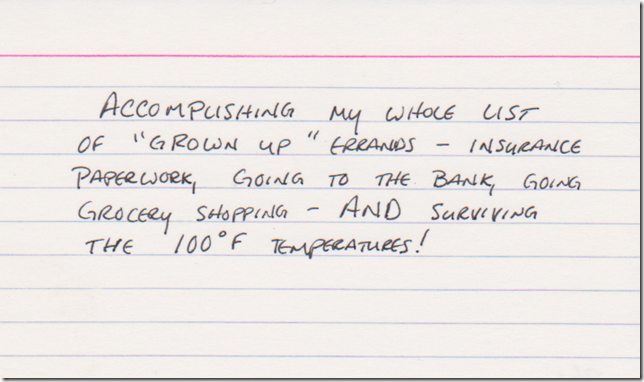 ACCOMPLISHING MY WHOLE LIST
OF "GROWN UP" ERRANDS - INSURANCE
PAPERWORK, GOING TO THE BANK, GOING
GROCERY SHOPPING - AND SURVIVING
THE 100°F TEMPERATURES!